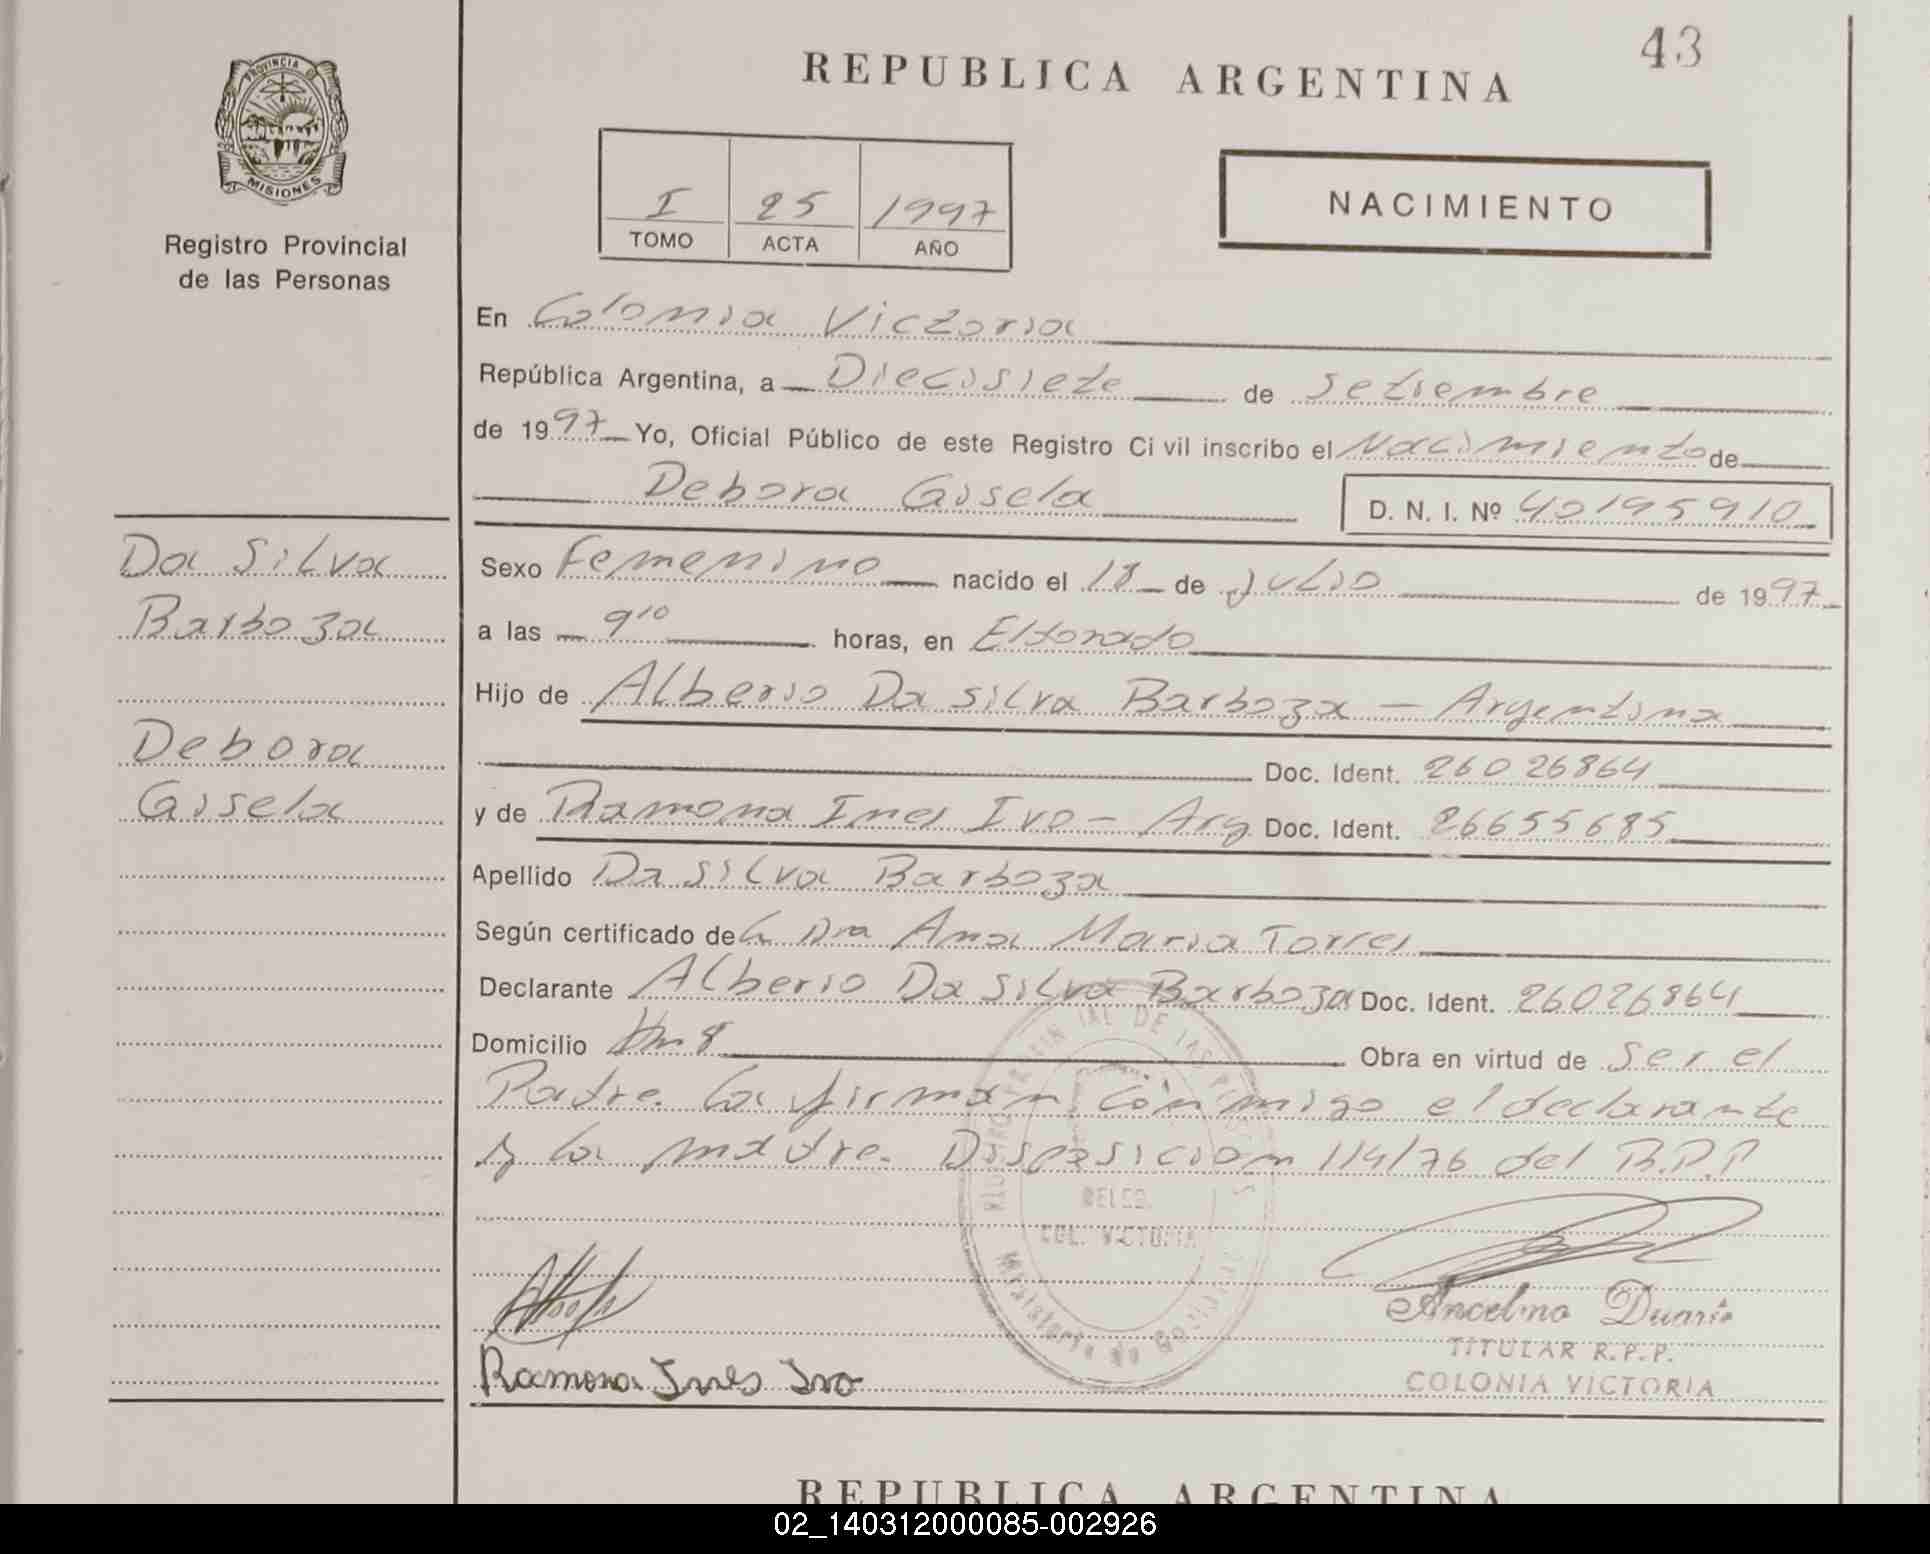 43
REPUBLICA ARGENTINA
PROVINCIA DE
MISIONES
Registro Provincial
de las Personas
I 25 1997
TOMO ACTA AÑO
NACIMIENTO
En Colonia Victoria
República Argentina, a Diecisiete de Setiembre
de 1997 Yo, Oficial Público de este Registro Civil inscribo el Nacimiento de
Debora Gisela D. N. I. Nº 40195910
Da Silva
Barboza
Debora
Gisela
Sexo Femenino nacido el 18 de Julio de 1997
a las 9¹⁰ horas, en Eldorado
Hijo de Alberto Da Silva Barboza - Argentina
Doc. Ident. 26026864
y de Ramona Ines Ivo - Arg Doc. Ident. 26655685
Apellido Da Silva Barboza
Según certificado de La Dra Ana Maria Torres
Declarante Alberto Da Silva Barboza Doc. Ident. 26026864
Domicilio Km 8 Obra en virtud de Ser el
Padre. La firman conmigo el declarante
y la madre. Disposicion 114/76 del R.P.P
DELEG.
COL. VICTORIA
Ministerio de Gobierno
Ramona Ines Ivo
Ancelmo Duarte
TITULAR R.P.P.
COLONIA VICTORIA
REPUBLICA ARGENTINA
02_140312000085-002926